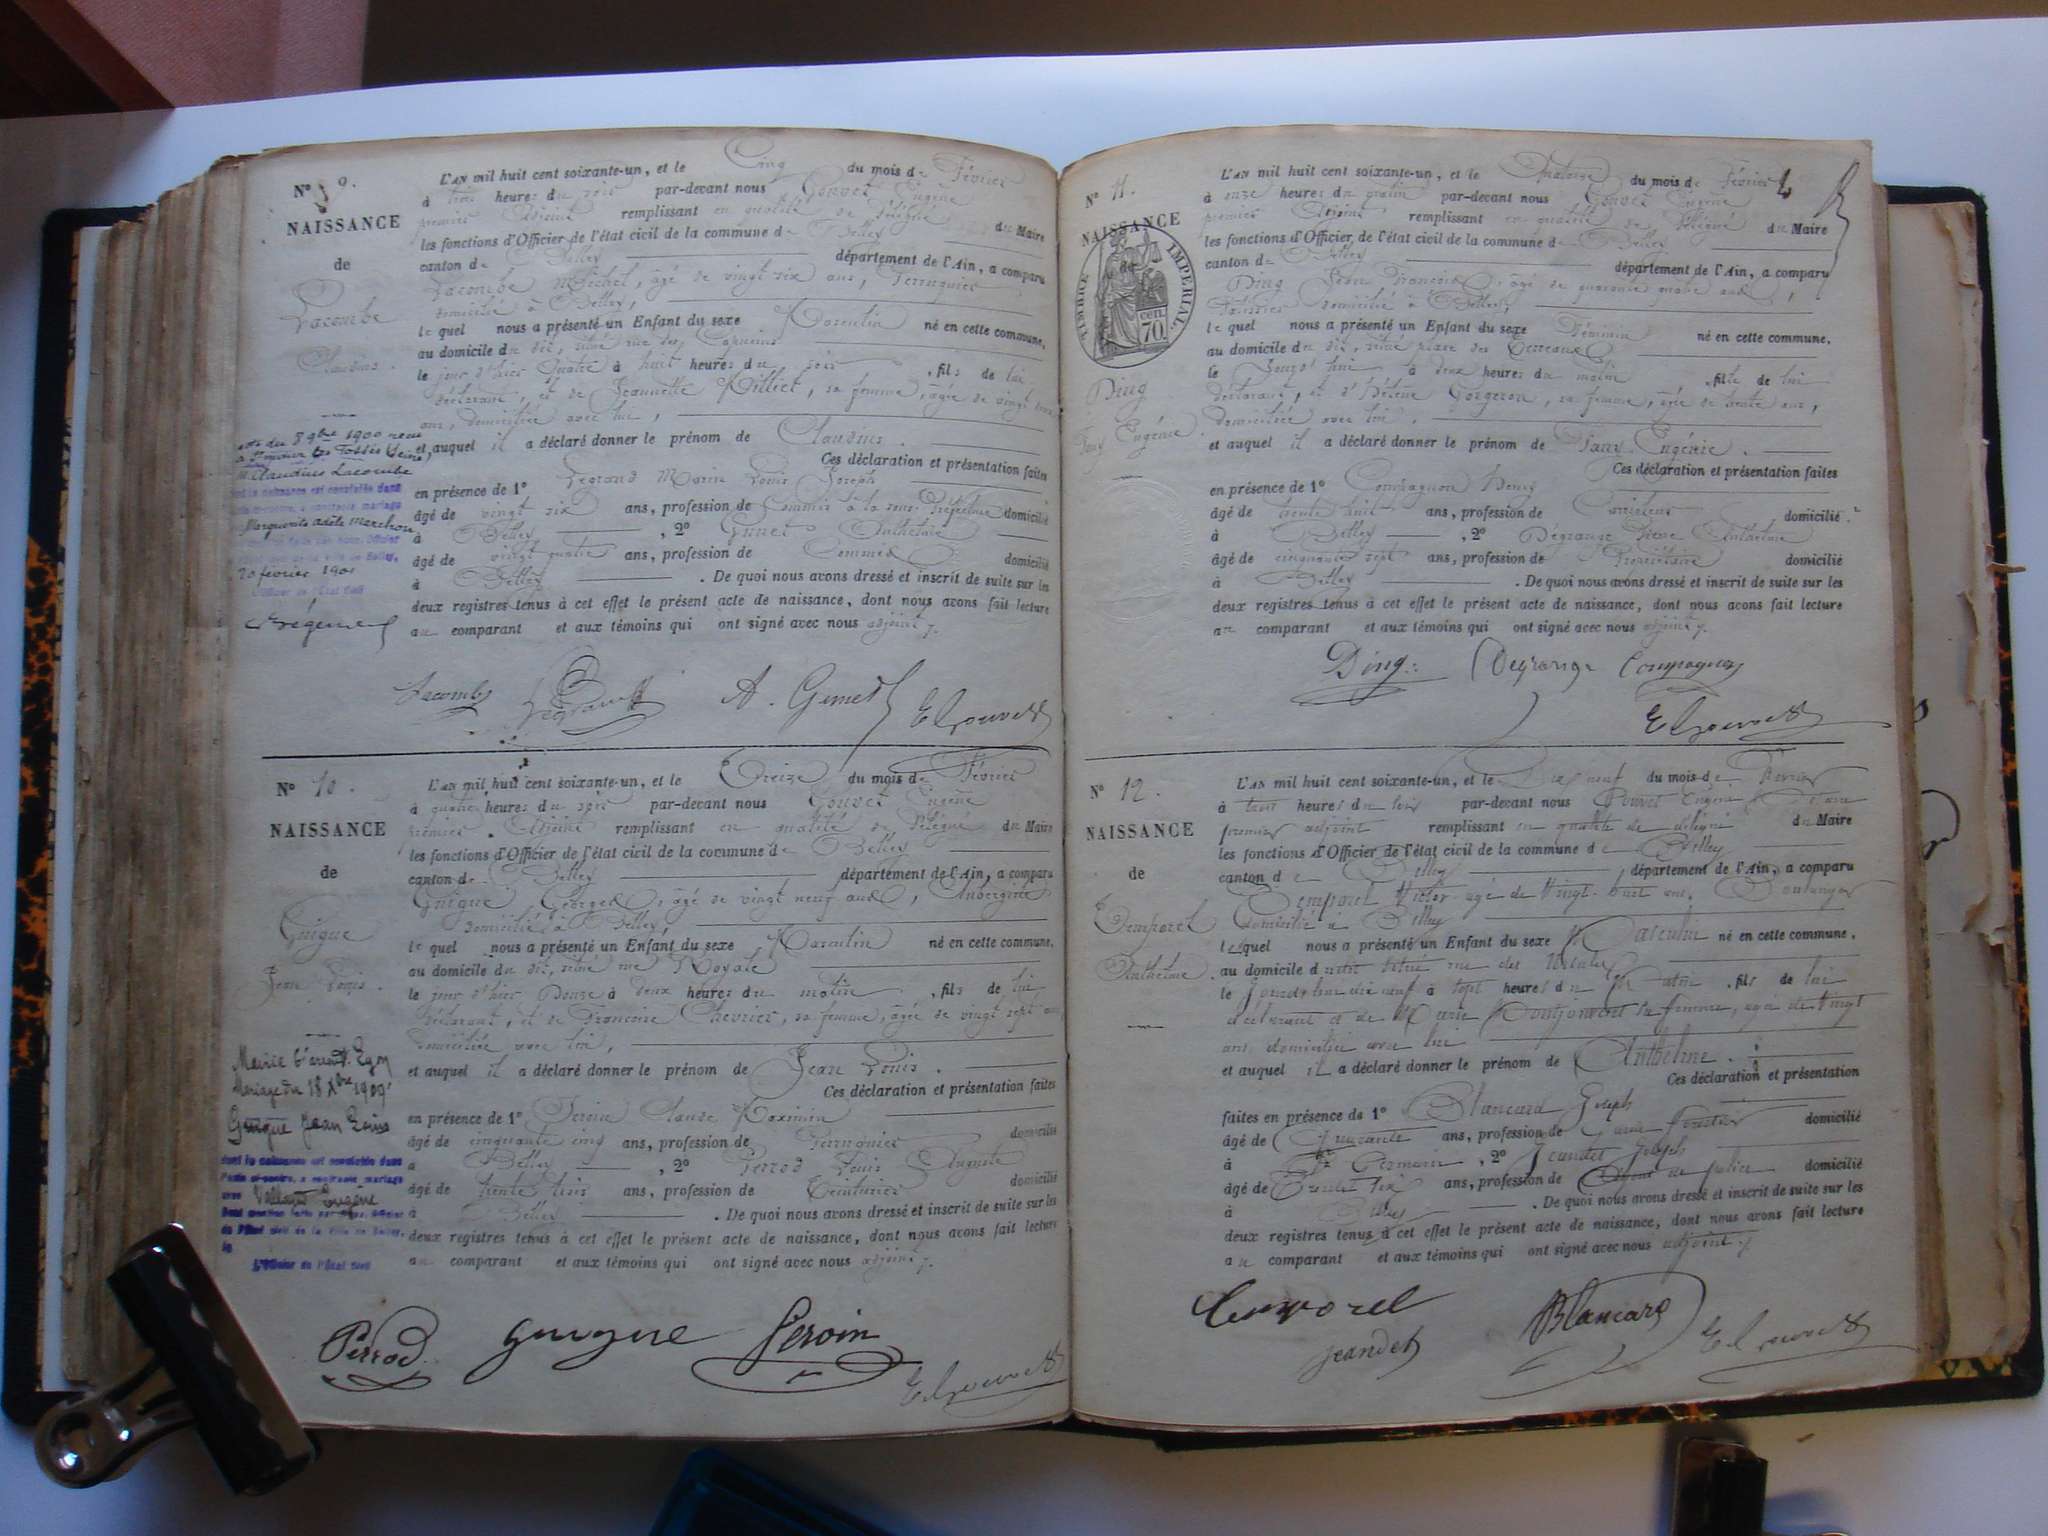 N° 9.
NAISSANCE
de
Lacombe
Claudius.
L'AN mil huit cent soixante-un, et le Cinq du mois de Février
à trois heures du soir par-devant nous Gouvet Eugène
premier Adjoint remplissant en qualité de Délégué du Maire
les fonctions d'Officier de l'état civil de la commune de Belley
canton de Belley département de l'Ain, a comparu
Lacombe Michel, âgé de vingt six ans, Perruquier
domicilié à Belley,
lequel nous a présenté un Enfant du sexe Masculin né en cette commune,
au domicile du dit, situé rue des Capucins
le jour d'hier quatre à huit heures du soir, fils de lui
déclarant, et de Jeannette Billiet, sa femme, âgée de vingt
ans, domiciliée avec lui,
et auquel il a déclaré donner le prénom de Claudius.
Ces déclaration et présentation faites
en présence de 1° Legrand Marie Louis Joseph
âgé de vingt six ans, profession de Commis à la sous-Préfecture domicilié
à Belley, 2° Genet Anthelme
âgé de vingt quatre ans, profession de Commis domicilié
à Belley. De quoi nous avons dressé et inscrit de suite sur les
deux registres tenus à cet effet le présent acte de naissance, dont nous avons fait lecture
au comparant et aux témoins qui ont signé avec nous adjoint.
du 8 9bre 1900
à St maur les Fossés (Seine)
M. Claudius Lacombe
dont la naissance est constatée dans
l'acte ci-contre, a contracté mariage
Marguerite Adèle
20 février 1901
L'Officier de l'État Civil
Lacombe Legrand A. Genet E Gouvet
N° 10.
NAISSANCE
de
Guigue
Jean Louis.
L'AN mil huit cent soixante-un, et le Treize du mois de Février
à quatre heures du soir par-devant nous Gouvet Eugène
premier Adjoint remplissant en qualité de Délégué du Maire
les fonctions d'Officier de l'état civil de la commune de Belley
canton de Belley département de l'Ain, a comparu
Guigue Georges, âgé de vingt neuf ans, Aubergiste
domicilié à Belley,
lequel nous a présenté un Enfant du sexe Masculin né en cette commune,
au domicile du dit, situé rue Royale
le jour d'hier Douze à deux heures du matin, fils de lui
déclarant, et de Françoise Chevrier, sa femme, âgée de vingt sept ans
domiciliée avec lui,
et auquel il a déclaré donner le prénom de Jean Louis.
Ces déclaration et présentation faites
en présence de 1° Feroin Claude Maximin
âgé de cinquante cinq ans, profession de domicilié
à Belley, 2° Perrod Louis Auguste
âgé de trente trois ans, profession de Teinturier domicilié
à Belley. De quoi nous avons dressé et inscrit de suite sur les
deux registres tenus à cet effet le présent acte de naissance, dont nous avons fait lecture
au comparant et aux témoins qui ont signé avec nous adjoint.
Mairie 6e arrondt. Lyon
Mariage du 18 Xbre 1909
Guigue Jean Louis
dont la naissance est constatée dans
l'acte ci-contre, a contracté mariage
avec Eugénie
de l'État civil de la Ville de Belley,
le
L'Officier de l'État Civil
Perrod Guigue Feroin
E Gouvet
N° 11.
NAISSANCE
de
TIMBRE IMPERIAL
70 cen.
Ding
Fany Eugénie.
L'AN mil huit cent soixante-un, et le Quatorze du mois de Février
à onze heures du matin par-devant nous Gouvet Eugène
premier Adjoint remplissant en qualité de Délégué du Maire
les fonctions d'Officier de l'état civil de la commune de Belley
canton de Belley département de l'Ain, a comparu
Ding Jean François, âgé de quarante quatre ans,
domicilié à Belley,
lequel nous a présenté un Enfant du sexe Féminin né en cette commune,
au domicile du dit, situé place des Terreaux
le Jourd'hui à deux heures du matin, fille de lui
déclarant, et d'Hélène Gorgeron, sa femme, âgée de trente ans,
domiciliée avec lui.
et auquel il a déclaré donner le prénom de Fany Eugénie.
Ces déclaration et présentation faites
en présence de 1° Compagnon Henry
âgé de trente huit ans, profession de domicilié
à Belley, 2° Dégrange Pierre Anthelme
âgé de cinquante sept ans, profession de Propriétaire domicilié
à Belley. De quoi nous avons dressé et inscrit de suite sur les
deux registres tenus à cet effet le présent acte de naissance, dont nous avons fait lecture
au comparant et aux témoins qui ont signé avec nous adjoint.
Ding Degrange Compagnon
E Gouvet
N° 12.
NAISSANCE
de
Temporel
Anthelme.
L'AN mil huit cent soixante-un, et le Dix neuf du mois de Février
à trois heures du soir par-devant nous Gouvet Eugène
premier adjoint remplissant en qualité de délégué du Maire
les fonctions d'Officier de l'état civil de la commune de Belley
canton de Belley, département de l'Ain, a comparu
Temporel Victor agé de Vingt-huit ans, Boulanger
domicilié à Belley
lequel nous a présenté un Enfant du sexe Masculin né en cette commune,
au domicile du dit situé rue des
le Jourd'hui dix neuf à sept heures du Matin, fils de lui
déclarant et de Marie sa femme, agée de Vingt
ans, domiciliée avec lui
et auquel il a déclaré donner le prénom de Anthelme.
Ces déclaration et présentation
faites en présence de 1° Blancard Joseph
âgé de Quarante ans, profession de Garde forestier domicilié
à St Germain, 2° Jeandet Joseph
âgé de Trente six ans, profession de Agent de police domicilié
à Belley. De quoi nous avons dressé et inscrit de suite sur les
deux registres tenus à cet effet le présent acte de naissance, dont nous avons fait lecture
au comparant et aux témoins qui ont signé avec nous adjoint.
Temporel Blancard
Jeandet E Gouvet